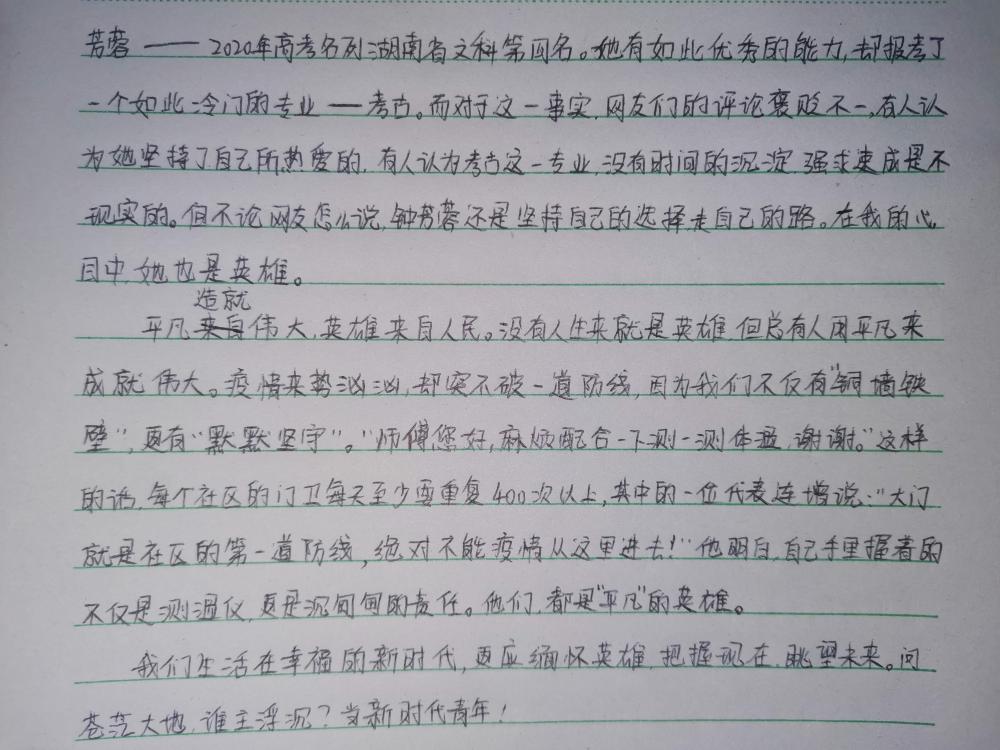 芳蓉——2020年高考名列湖南省文科第四名。她有如此优秀的能力,却报考了
一个如此冷门的专业——考古。而对于这一事实,网友们的评论褒贬不一,有人认
为她坚持了自己所热爱的,有人认为考古这一专业,没有时间的沉淀,强求速成是不
现实的。但不论网友怎么说,钟芳蓉还是坚持自己的选择,走自己的路。在我的心
目中,她也是英雄。
造就
平凡来自伟大,英雄来自人民。没有人生来就是英雄,但总有人用平凡来
成就伟大。疫情来势汹汹,却突不破一道防线,因为我们不仅有“铜墙铁
壁”,更有“默默坚守”。“师傅您好,麻烦配合一下测一测体温,谢谢。”这样
的话,每个社区的门卫每天至少要重复400次以上,其中的一位代表连增说:“大门
就是社区的第一道防线,绝对不能疫情从这里进去!”他明白,自己手里握着的
不仅是测温仪,更是沉甸甸的责任。他们,都是“平凡”的英雄。
我们生活在幸福的新时代,更应缅怀英雄,把握现在,眺望未来。问
苍茫大地,谁主浮沉?当新时代青年!